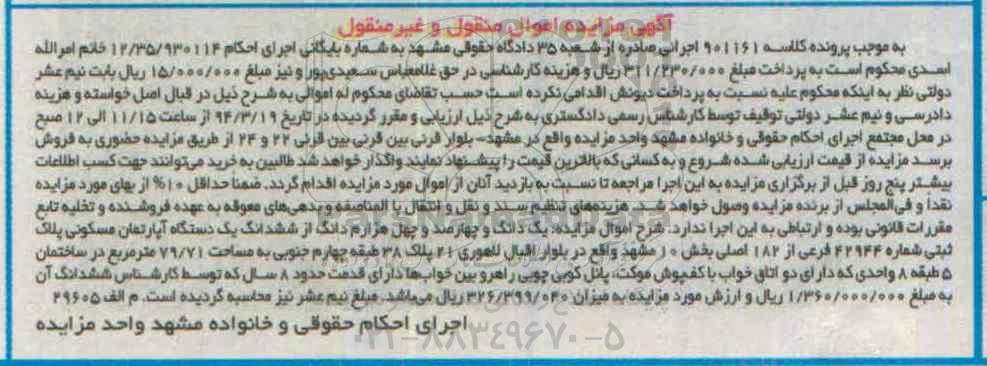 آگهی مزایده اموال منقول و غیرمنقول
به موجب پرونده کلاسه ۹۰۱۱۶۱ اجرائی صادره از شعبه ۳۵ دادگاه حقوقی مشهد به شماره بایگانی اجرای احکام ۱۲/۳۵/۹۳۰۱۱۴ خانم امرالله
اسدی محکوم است به پرداخت مبلغ ۳۱۱/۲۳۰/۰۰۰ ریال و هزینه کارشناسی در حق غلامعباس سعیدی‌پور و نیز مبلغ ۱۵/۰۰۰/۰۰۰ ریال بابت نیم عشر
دولتی نظر به اینکه محکوم علیه نسبت به پرداخت دیونش اقدامی نکرده است حسب تقاضای محکوم له اموالی به شرح ذیل در قبال اصل خواسته و هزینه
دادرسی و نیم عشر دولتی توقیف توسط کارشناس رسمی دادگستری به شرح ذیل ارزیابی و مقرر گردیده در تاریخ ۹۴/۳/۱۹ از ساعت ۱۱/۱۵ الی ۱۲ صبح
در محل مجتمع اجرای احکام حقوقی و خانواده مشهد واحد مزایده واقع در مشهد- بلوار قرنی بین قرنی بین قرنی ۲۲ و ۲۴ از طریق مزایده حضوری به فروش
برسد مزایده از قیمت ارزیابی شده شروع و به کسانی که بالاترین قیمت را پیشنهاد نمایند واگذار خواهد شد طالبین به خرید می‌توانند جهت کسب اطلاعات
بیشتر پنج روز قبل از برگزاری مزایده به این اجرا مراجعه تا نسبت به بازدید آنان از اموال مورد مزایده اقدام گردد. ضمنا حداقل ۱۰% از بهای مورد مزایده
نقدا و فی‌المجلس از برنده مزایده وصول خواهد شد. هزینه‌های تنظیم سند و نقل و انتقال بالمناصفه و بدهی‌های معوقه به عهده فروشنده و تخلیه تابع
مقررات قانونی بوده و ارتباطی به این اجرا ندارد. شرح اموال مزایده: یک دانگ و چهارصد و چهل هزارم دانگ از ششدانگ یک دستگاه آپارتمان مسکونی پلاک
ثبتی شماره ۴۲۹۴۴ فرعی از ۱۸۲ اصلی بخش ۱۰ مشهد واقع در بلوار اقبال لاهوری ۲۱ پلاک ۳۸ طبقه چهارم جنوبی به مساحت ۷۹/۷۱ مترمربع در ساختمان
۵ طبقه ۸ واحدی که دارای دو اتاق خواب با کفپوش موکت، پانل کوبی چوبی راهرو بین خوابها دارای قدمت حدود ۸ سال که توسط کارشناس ششدانگ آن
به مبلغ ۱/۳۶۰/۰۰۰/۰۰۰ ریال و ارزش مورد مزایده به میزان ۳۲۶/۳۹۹/۰۴۰ ریال می‌باشد. مبلغ نیم عشر نیز محاسبه گردیده است. م الف ۲۹۶۰۵
اجرای احکام حقوقی و خانواده مشهد واحد مزایده
۰۲۱-۸۸۳۴۹۶۷۰-۵